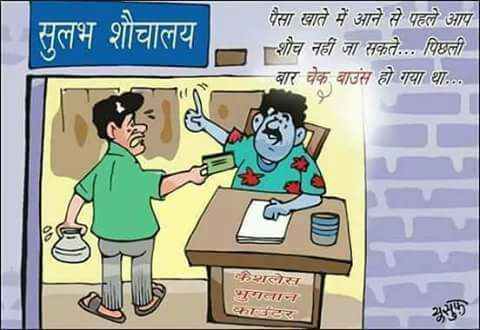 सुलभ शौचालय
पैसा खाते में आने से पहले आप
शौच नहीं जा सकते... पिछली
बार चेक बाउंस हो गया था...
कैशलेस
भुगतान
काउंटर
यूसुफ़